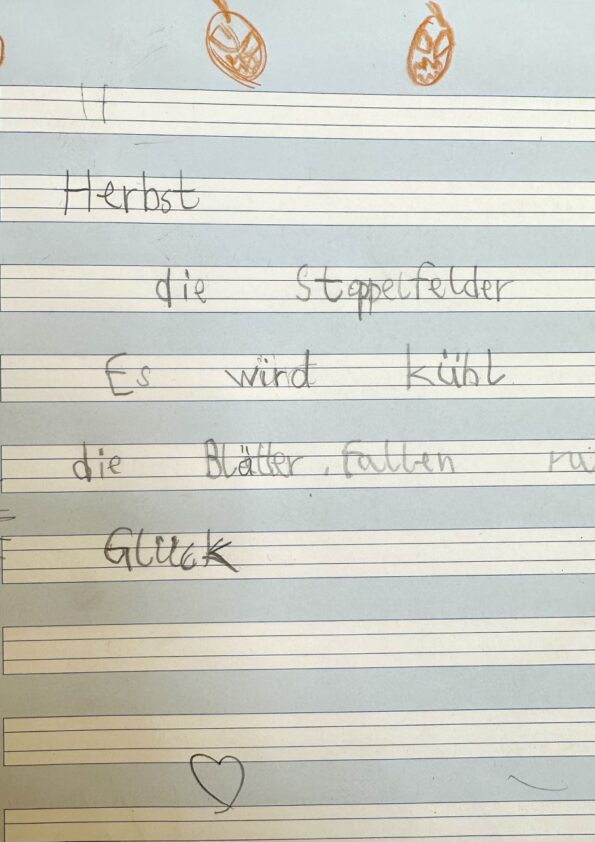 Herbst
die Stoppelfelder
Es wird kühl
die Blätter, fallen
Glück